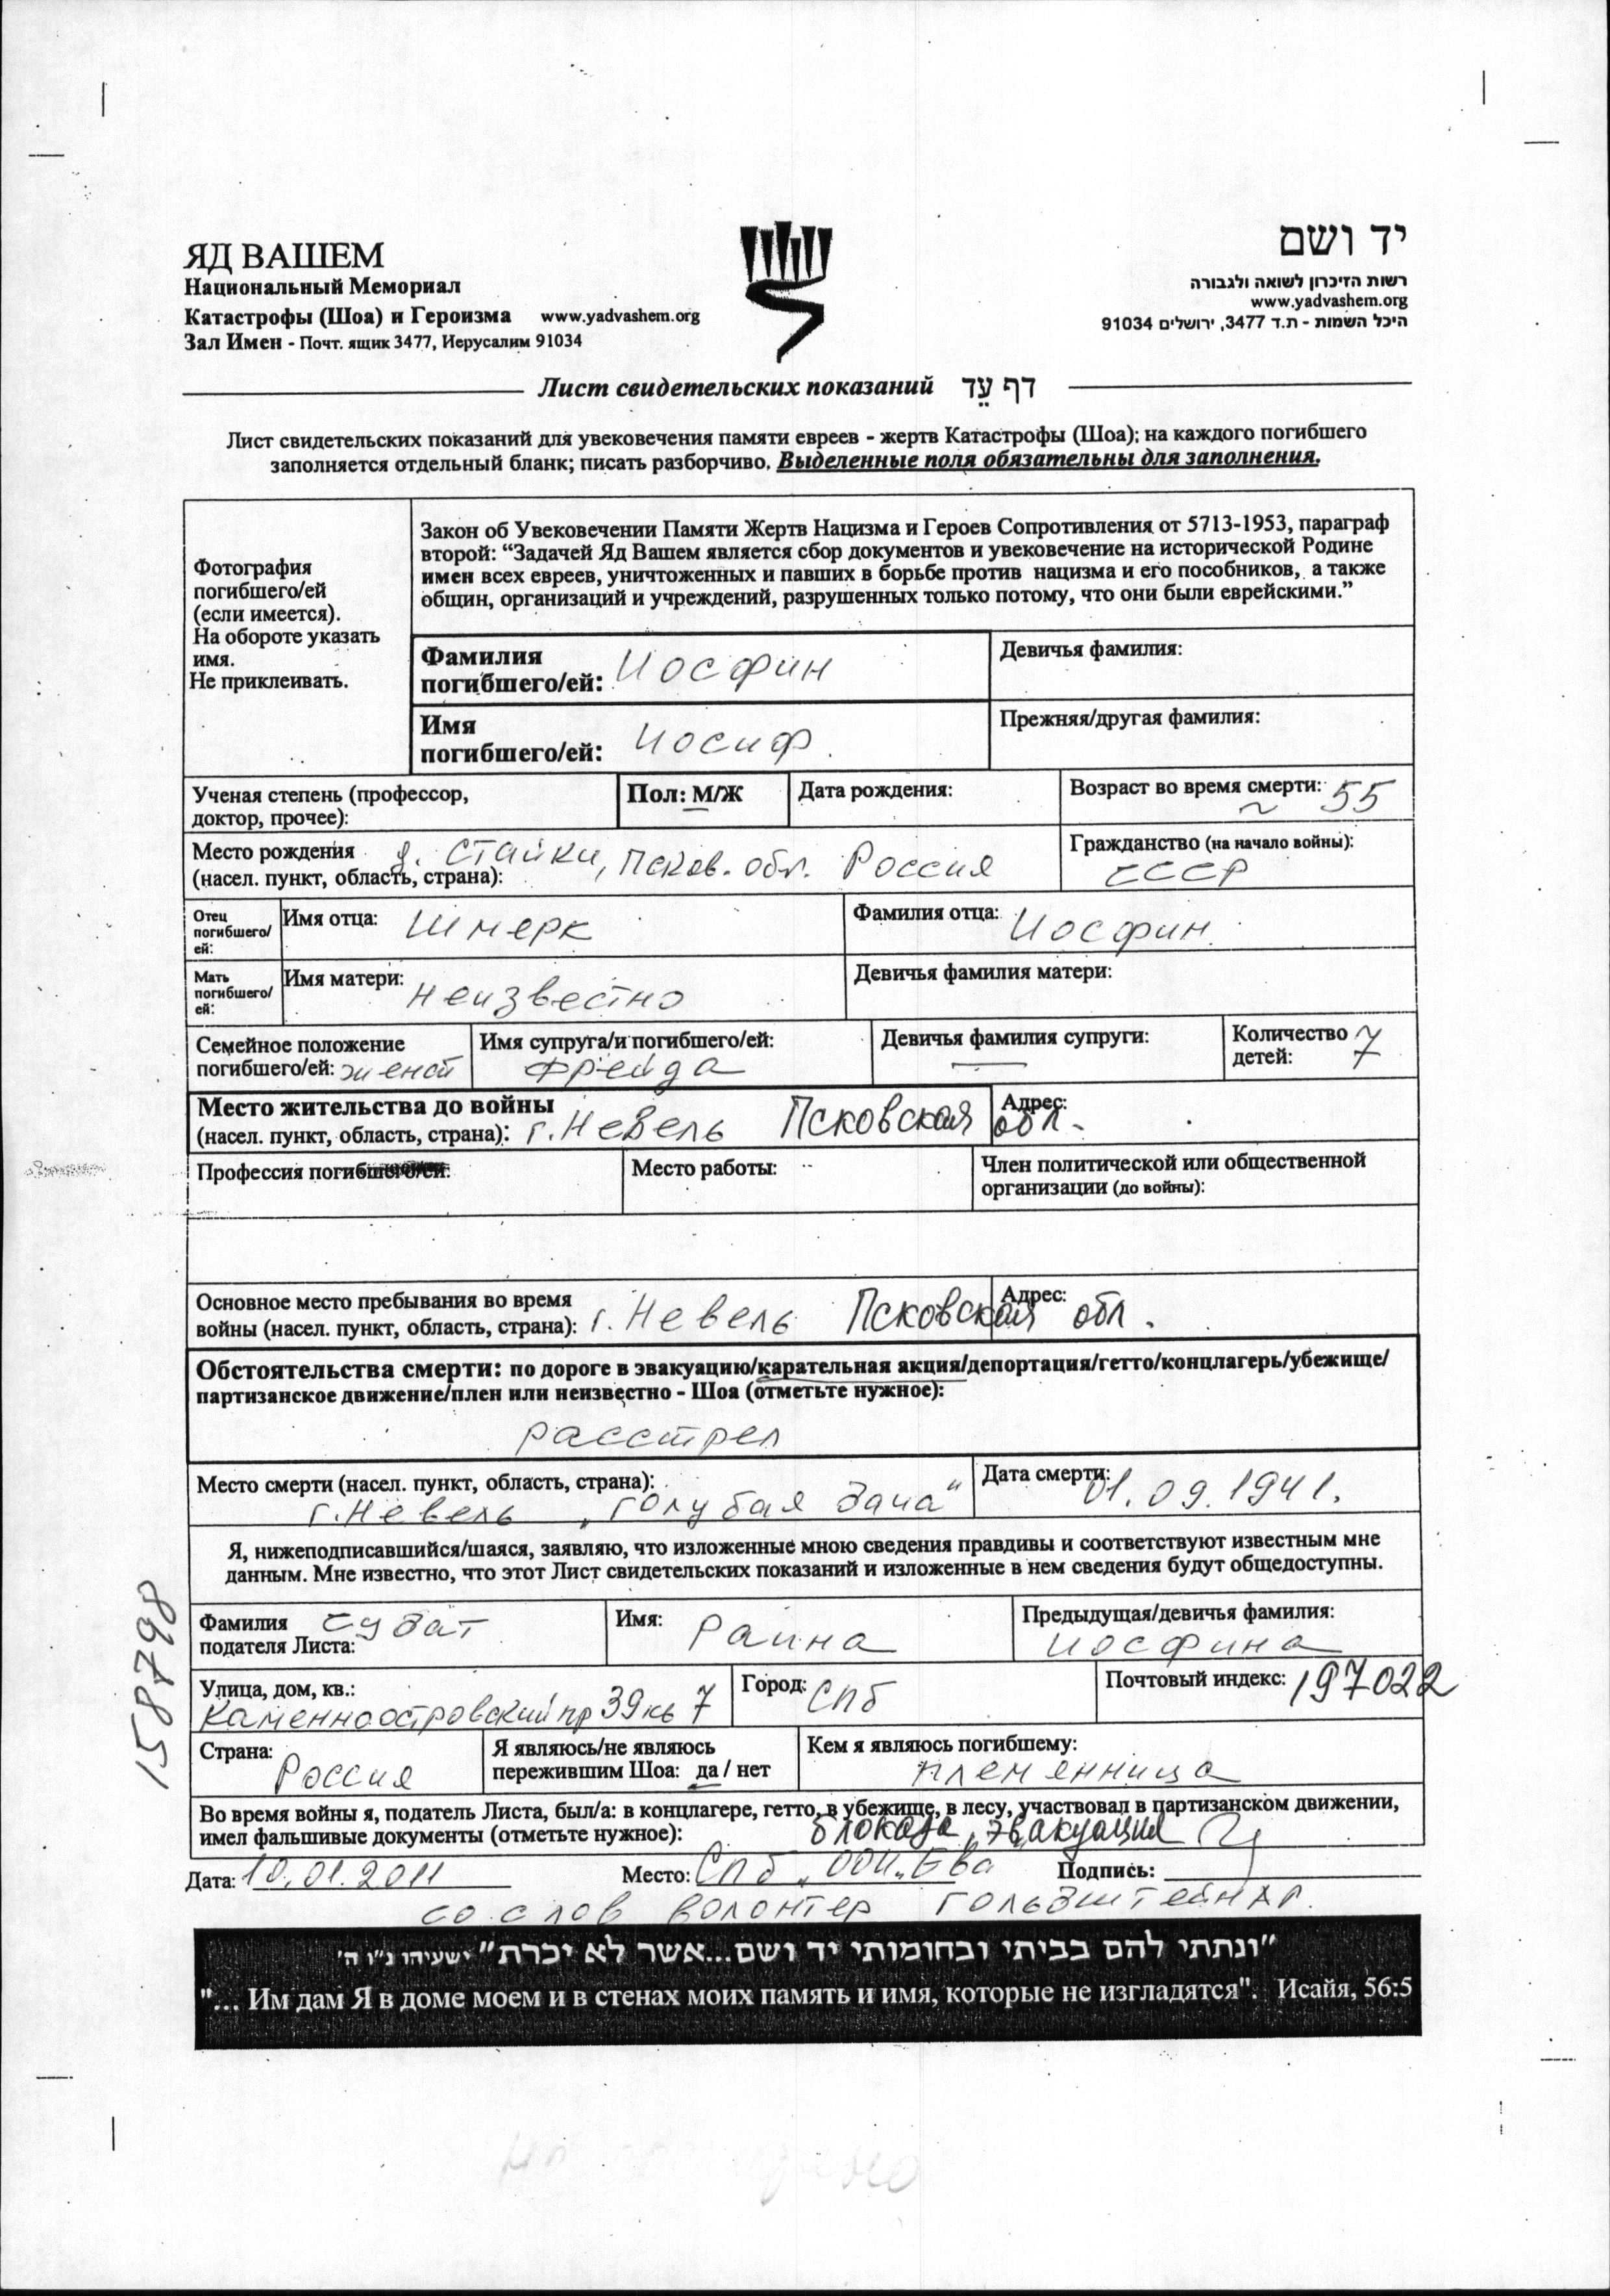 ЯД ВАШЕМ
Национальный Мемориал
Катастрофы (Шоа) и Героизма www.yadvashem.org
Зал Имен - Почт. ящик 3477, Иерусалим 91034
יד ושם
רשות הזיכרון לשואה ולגבורה
www.yadvashem.org
היכל השמות - ת.ד 3477, ירושלים 91034
Лист свидетельских показаний דף עֵד
Лист свидетельских показаний для увековечения памяти евреев - жертв Катастрофы (Шоа); на каждого погибшего
заполняется отдельный бланк; писать разборчиво. Выделенные поля обязательны для заполнения.
Фотография
погибшего/ей
(если имеется).
На обороте указать
имя.
Не приклеивать.
Закон об Увековечении Памяти Жертв Нацизма и Героев Сопротивления от 5713-1953, параграф
второй: “Задачей Яд Вашем является сбор документов и увековечение на исторической Родине
имен всех евреев, уничтоженных и павших в борьбе против нацизма и его пособников, а также
общин, организаций и учреждений, разрушенных только потому, что они были еврейскими.”
Фамилия
погибшего/ей: Иосфин
Девичья фамилия:
Имя
погибшего/ей: Иосиф
Прежняя/другая фамилия:
Ученая степень (профессор,
доктор, прочее):
Пол: М/Ж
Дата рождения:
Возраст во время смерти: ~ 55
Место рождения
(насел. пункт, область, страна): д. Стайки, Псков. обл. Россия
Гражданство (на начало войны):
СССР
Отец
погибшего/
ей:
Имя отца: Шмерк
Фамилия отца: Иосфин
Мать
погибшего/
ей:
Имя матери: неизвестно
Девичья фамилия матери:
Семейное положение
погибшего/ей: женат
Имя супруга/и погибшего/ей:
Фрейда
Девичья фамилия супруги:
—
Количество
детей: 7
Место жительства до войны
(насел. пункт, область, страна): г. Невель Псковская обл.
Адрес:
Профессия погибшего/ей:
Место работы:
Член политической или общественной
организации (до войны):
Основное место пребывания во время
войны (насел. пункт, область, страна): г. Невель Псковская обл.
Адрес:
Обстоятельства смерти: по дороге в эвакуацию/карательная акция/депортация/гетто/концлагерь/убежище/
партизанское движение/плен или неизвестно - Шоа (отметьте нужное):
расстрел
Место смерти (насел. пункт, область, страна):
г. Невель „голубая дача“
Дата смерти: 01.09.1941.
Я, нижеподписавшийся/шаяся, заявляю, что изложенные мною сведения правдивы и соответствуют известным мне
данным. Мне известно, что этот Лист свидетельских показаний и изложенные в нем сведения будут общедоступны.
Фамилия
подателя Листа: Судат
Имя: Раина
Предыдущая/девичья фамилия:
Иосфина
Улица, дом, кв.:
Каменноостровский пр 39 кв 7
Город: СПб
Почтовый индекс: 197022
Страна: Россия
Я являюсь/не являюсь
пережившим Шоа: да / нет
Кем я являюсь погибшему:
племянница
Во время войны я, податель Листа, был/а: в концлагере, гетто, в убежище, в лесу, участвовал в партизанском движении,
имел фальшивые документы (отметьте нужное): блокада, эвакуация
Дата: 10.01.2011
Место: СПб „ООИ„Ева
Подпись:
со слов волонтер Гольдштейн А.Г.
1587798
"ונתתי להם בביתי ובחומותי יד ושם...אשר לא יכרת" ישעיהו נ"ו ה'
"... Им дам Я в доме моем и в стенах моих память и имя, которые не изгладятся". Исайя, 56:5